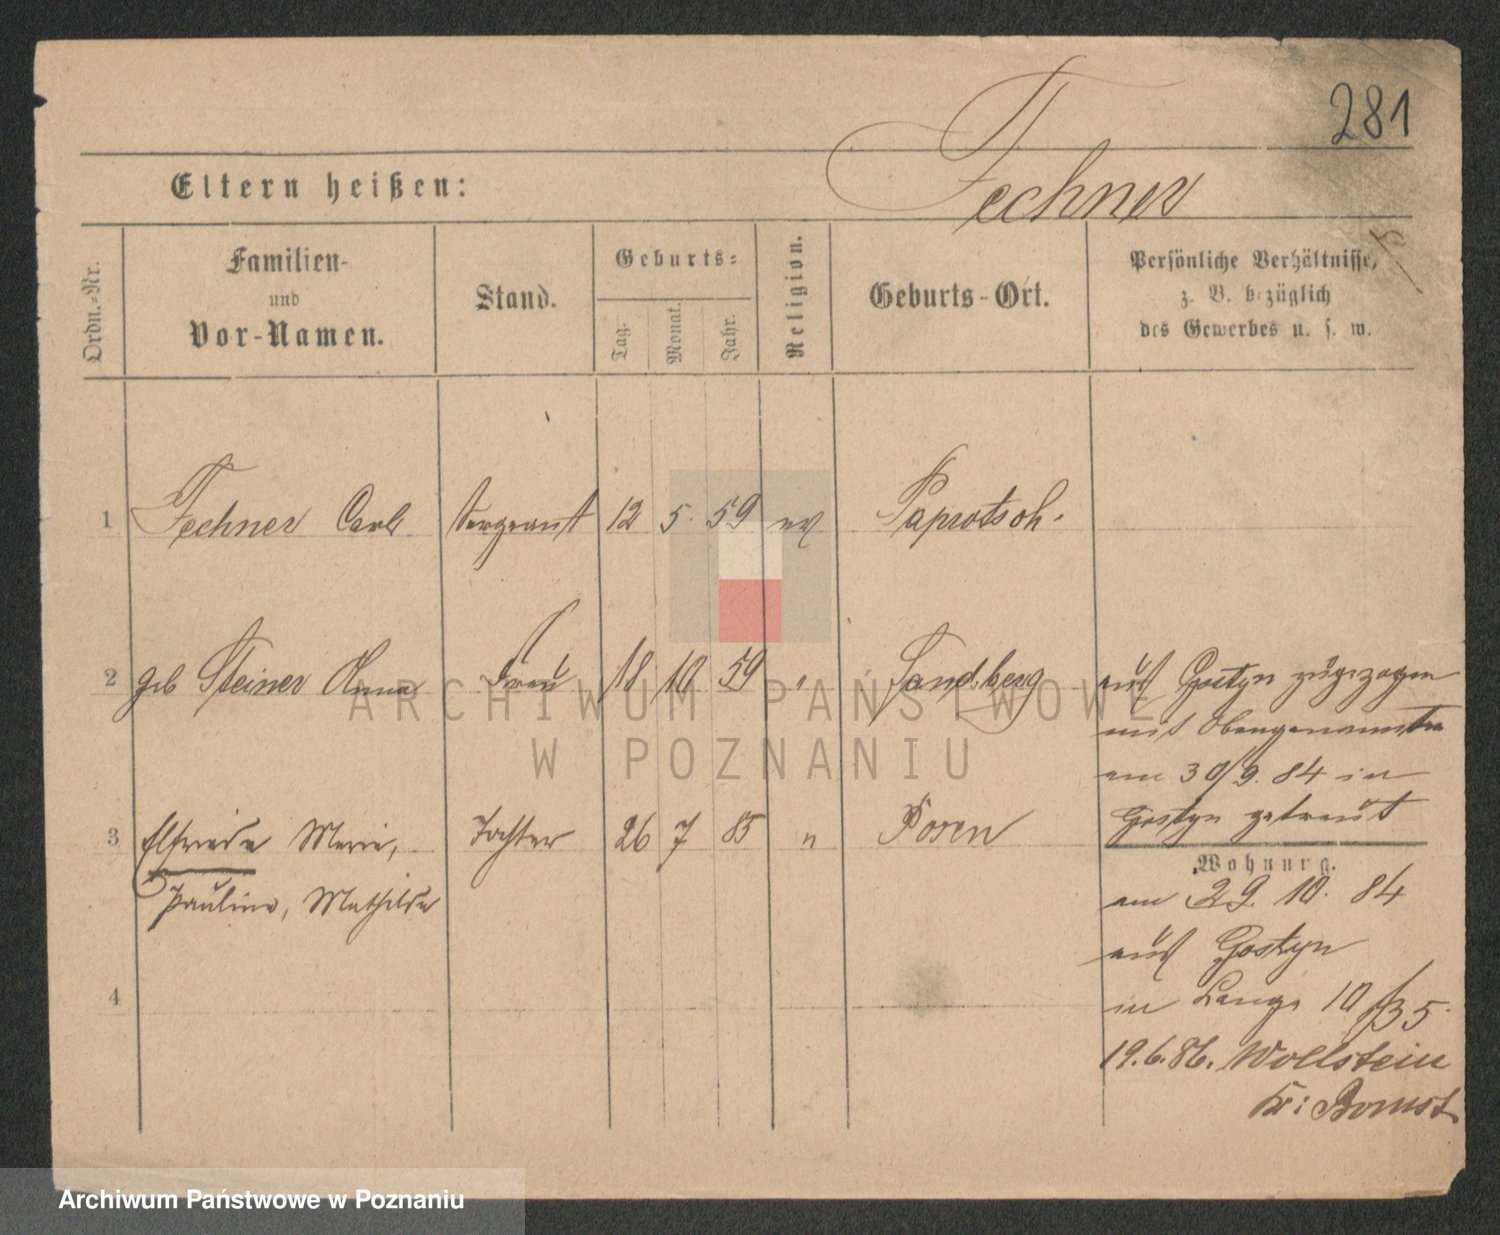 281
Eltern heißen:
Fechner
Ordn.-Nr.
Familien-
und
Vor-Namen.
Stand.
Geburts-
Tag.
Monat.
Jahr.
Religion.
Geburts-Ort.
Persönliche Verhältnisse,
z. B. bezüglich
des Gewerbes u. s. w.
1 Fechner Carl Sergeant 12 5. 59 ev Paprotsch.
2 geb Steiner Anna Frau 18 10 59 " Sandberg
aus Gostyn zugezogen
mit Obengenannten
am 30/9. 84 in
Gostyn getraut
3 Elfriede Marie, Tochter 26 7 85 " Posen
Pauline, Mathilde
Wohnung.
am 29. 10. 84
aus Gostyn
in Lange 10
4
19.6.86. Wollstein
Kr: Bomst
ARCHIWUM PAŃSTWOWE
W POZNANIU
Archiwum Państwowe w Poznaniu